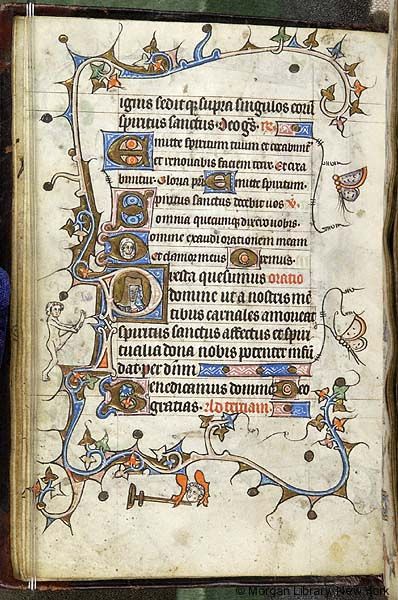 ignis sedit qȝ supra singulos coru
spiritus sanctus. Deo gr̄s. R
Emitte spiritum tuum et creabunt
et renovabis faciem terre. Et crea
buntur. Gloria pr̄i Emitte spiritum.
Spiritus sanctus docebit vos V
omnia quecumqȝ dixero vobis.
Domine exaudi orationem meam
et clamor meus Oremus.
Presta quesumus oratio
domine ut a nostris me
tibus carnales amoveat
spiritus sanctus affectus et spiri
tualia dona nobis potenter infū
dat per dn̄m
Benedicamus domino Deo
gratias. Ad terciam
© Morgan Library, New York